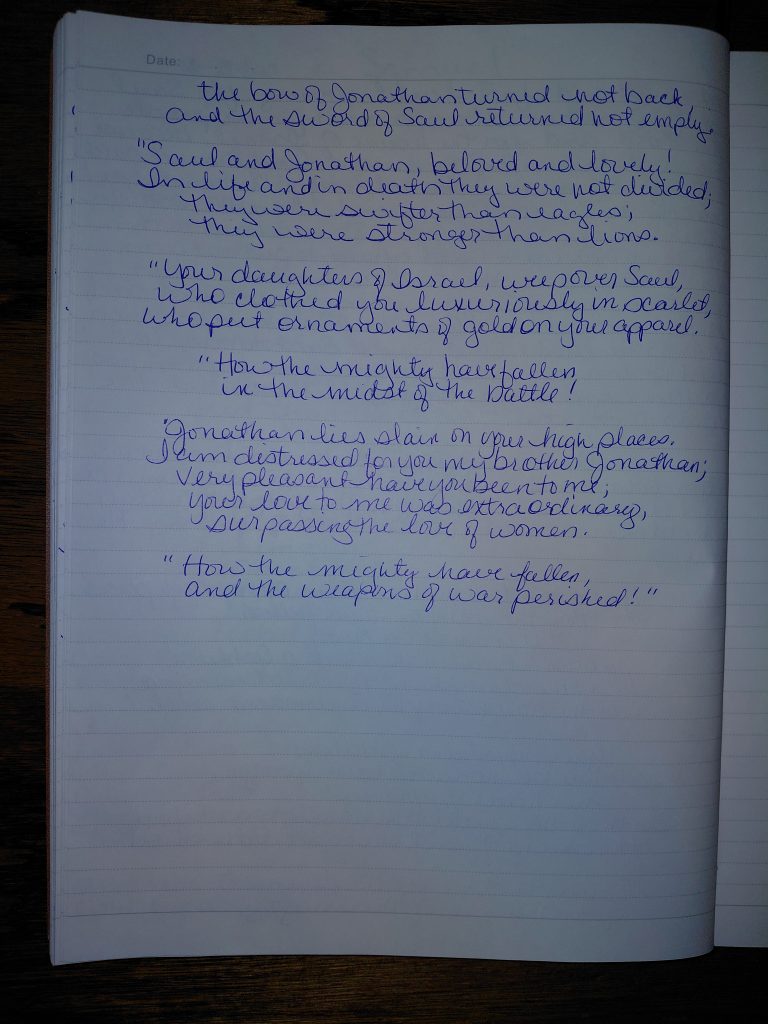 Date:
the bow of Jonathan turned not back,
and the sword of Saul returned not empty.
"Saul and Jonathan, beloved and lovely!
In life and in death they were not divided;
they were swifter than eagles;
they were stronger than lions.
"Your daughters of Israel, weep over Saul,
who clothed you luxuriously in scarlet,
who put ornaments of gold on your apparel.
"How the mighty have fallen
in the midst of the battle!
"Jonathan lies slain on your high places.
I am distressed for you my brother Jonathan;
very pleasant have you been to me;
your love to me was extraordinary,
surpassing the love of women.
"How the mighty have fallen,
and the weapons of war perished!"